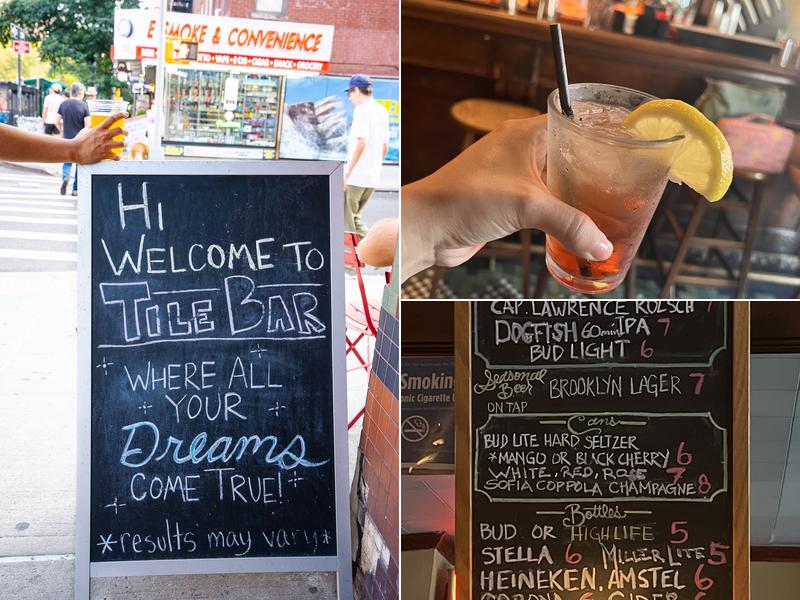 SMOKE & CONVENIENCE
HI
WELCOME TO
TILE BAR
WHERE ALL
YOUR
Dreams
COME TRUE!
*results may vary*
CAP. LAWRENCE KOLSCH 7
DOGFISH 60min IPA 7
BUD LIGHT 6
Seasonal
Beer BROOKLYN LAGER 7
ON TAP
Cans
BUD LITE HARD SELTZER
*MANGO OR BLACK CHERRY 6
WHITE, RED, ROSE 7
SOFIA COPPOLA CHAMPAGNE 8
Bottles
BUD OR HIGH LIFE 5
STELLA 6 MILLER LITE 5
HEINEKEN, AMSTEL 6
CORONA 6 CIDER 6
Smoking
onic Cigarette